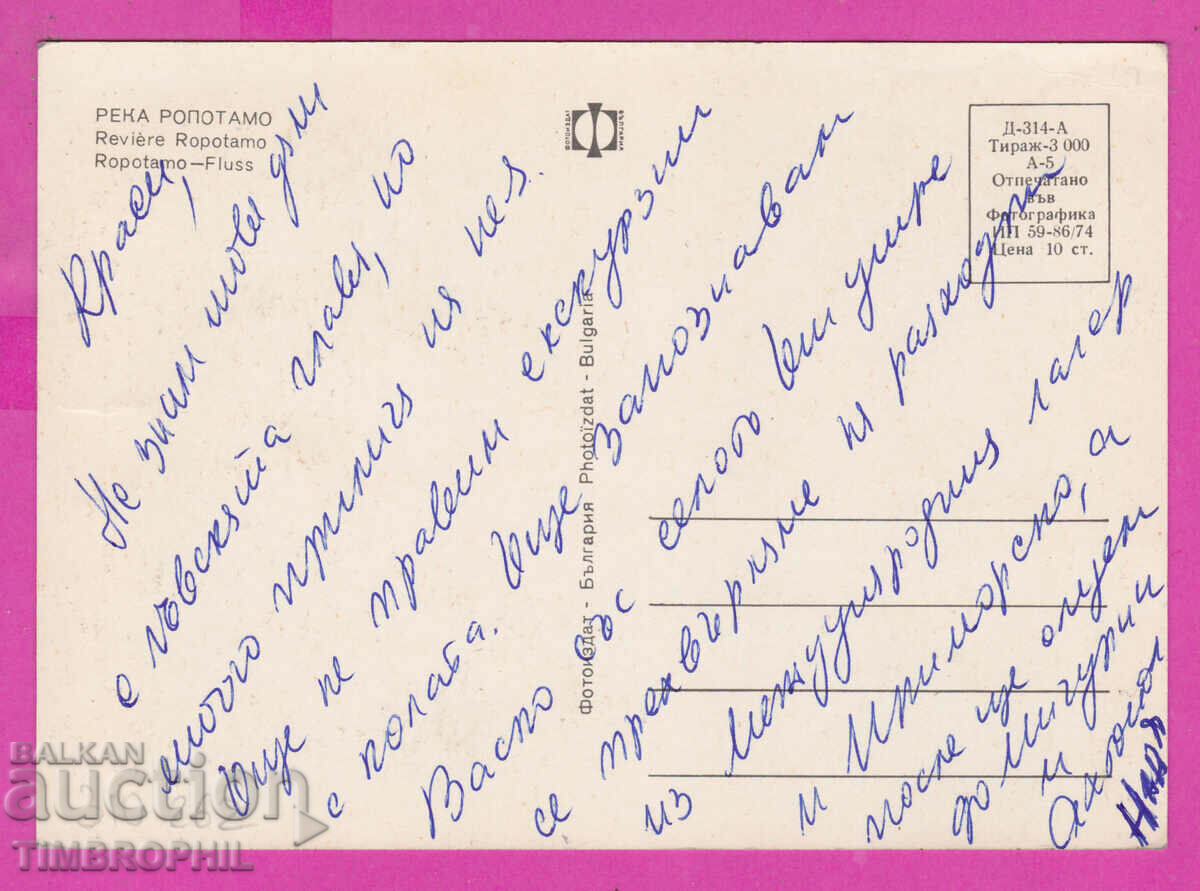 РЕКА РОПОТАМО
Revière Ropotamo
Ropotamo—Fluss
ФОТОИЗДАТ
БЪЛГАРИЯ
Д-314-А
Тираж-3 000
А-5
Отпечатано
във
Фотографика
ИП 59-86/74
Цена 10 ст.
Фотоиздат - България Photoïzdat - Bulgaria
Краси,
Не знам това дали
е лъвската глава, но
много прилича на нея.
Още не правим екскурзии
с колата. Още запознавам
Васко със селото. Ни умре
се прехвърляме на разходки
из международния лагер
и Приморско, а
после ще отидем
до Мичурин
и
Ахтопол
Надя
BALKAN
auction
TIMBROPHIL